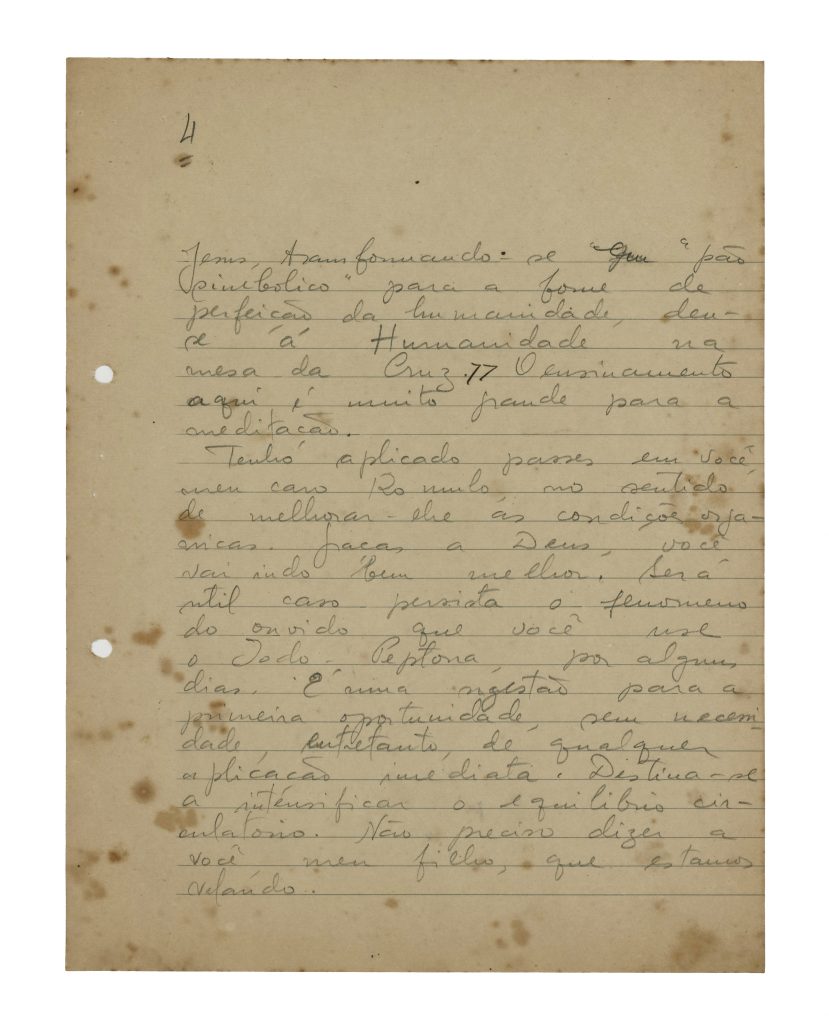 4
Jesus, transformando-se "pão
simbolico" para a fome de
perfeição da humanidade, deu-
se á Humanidade na
mesa da Cruz. O ensinamento
aqui é muito grande para a
meditação.
Tenho aplicado passes em você,
meu caro Romulo no sentido
de melhorar-lhe as condições orga-
nicas. Graças a Deus, você
vai indo bem melhor. Será
util caso persista o fenomeno
do ouvido que você use
o Iodo-Peptona, por alguns
dias. É uma sugestão para a
primeira oportunidade, sem necessi-
dade, entretanto, de qualquer
aplicação imediata. Destina-se
a intensificar o equilibrio cir-
culatorio. Não preciso dizer a
você meu filho, que estamos
velando.